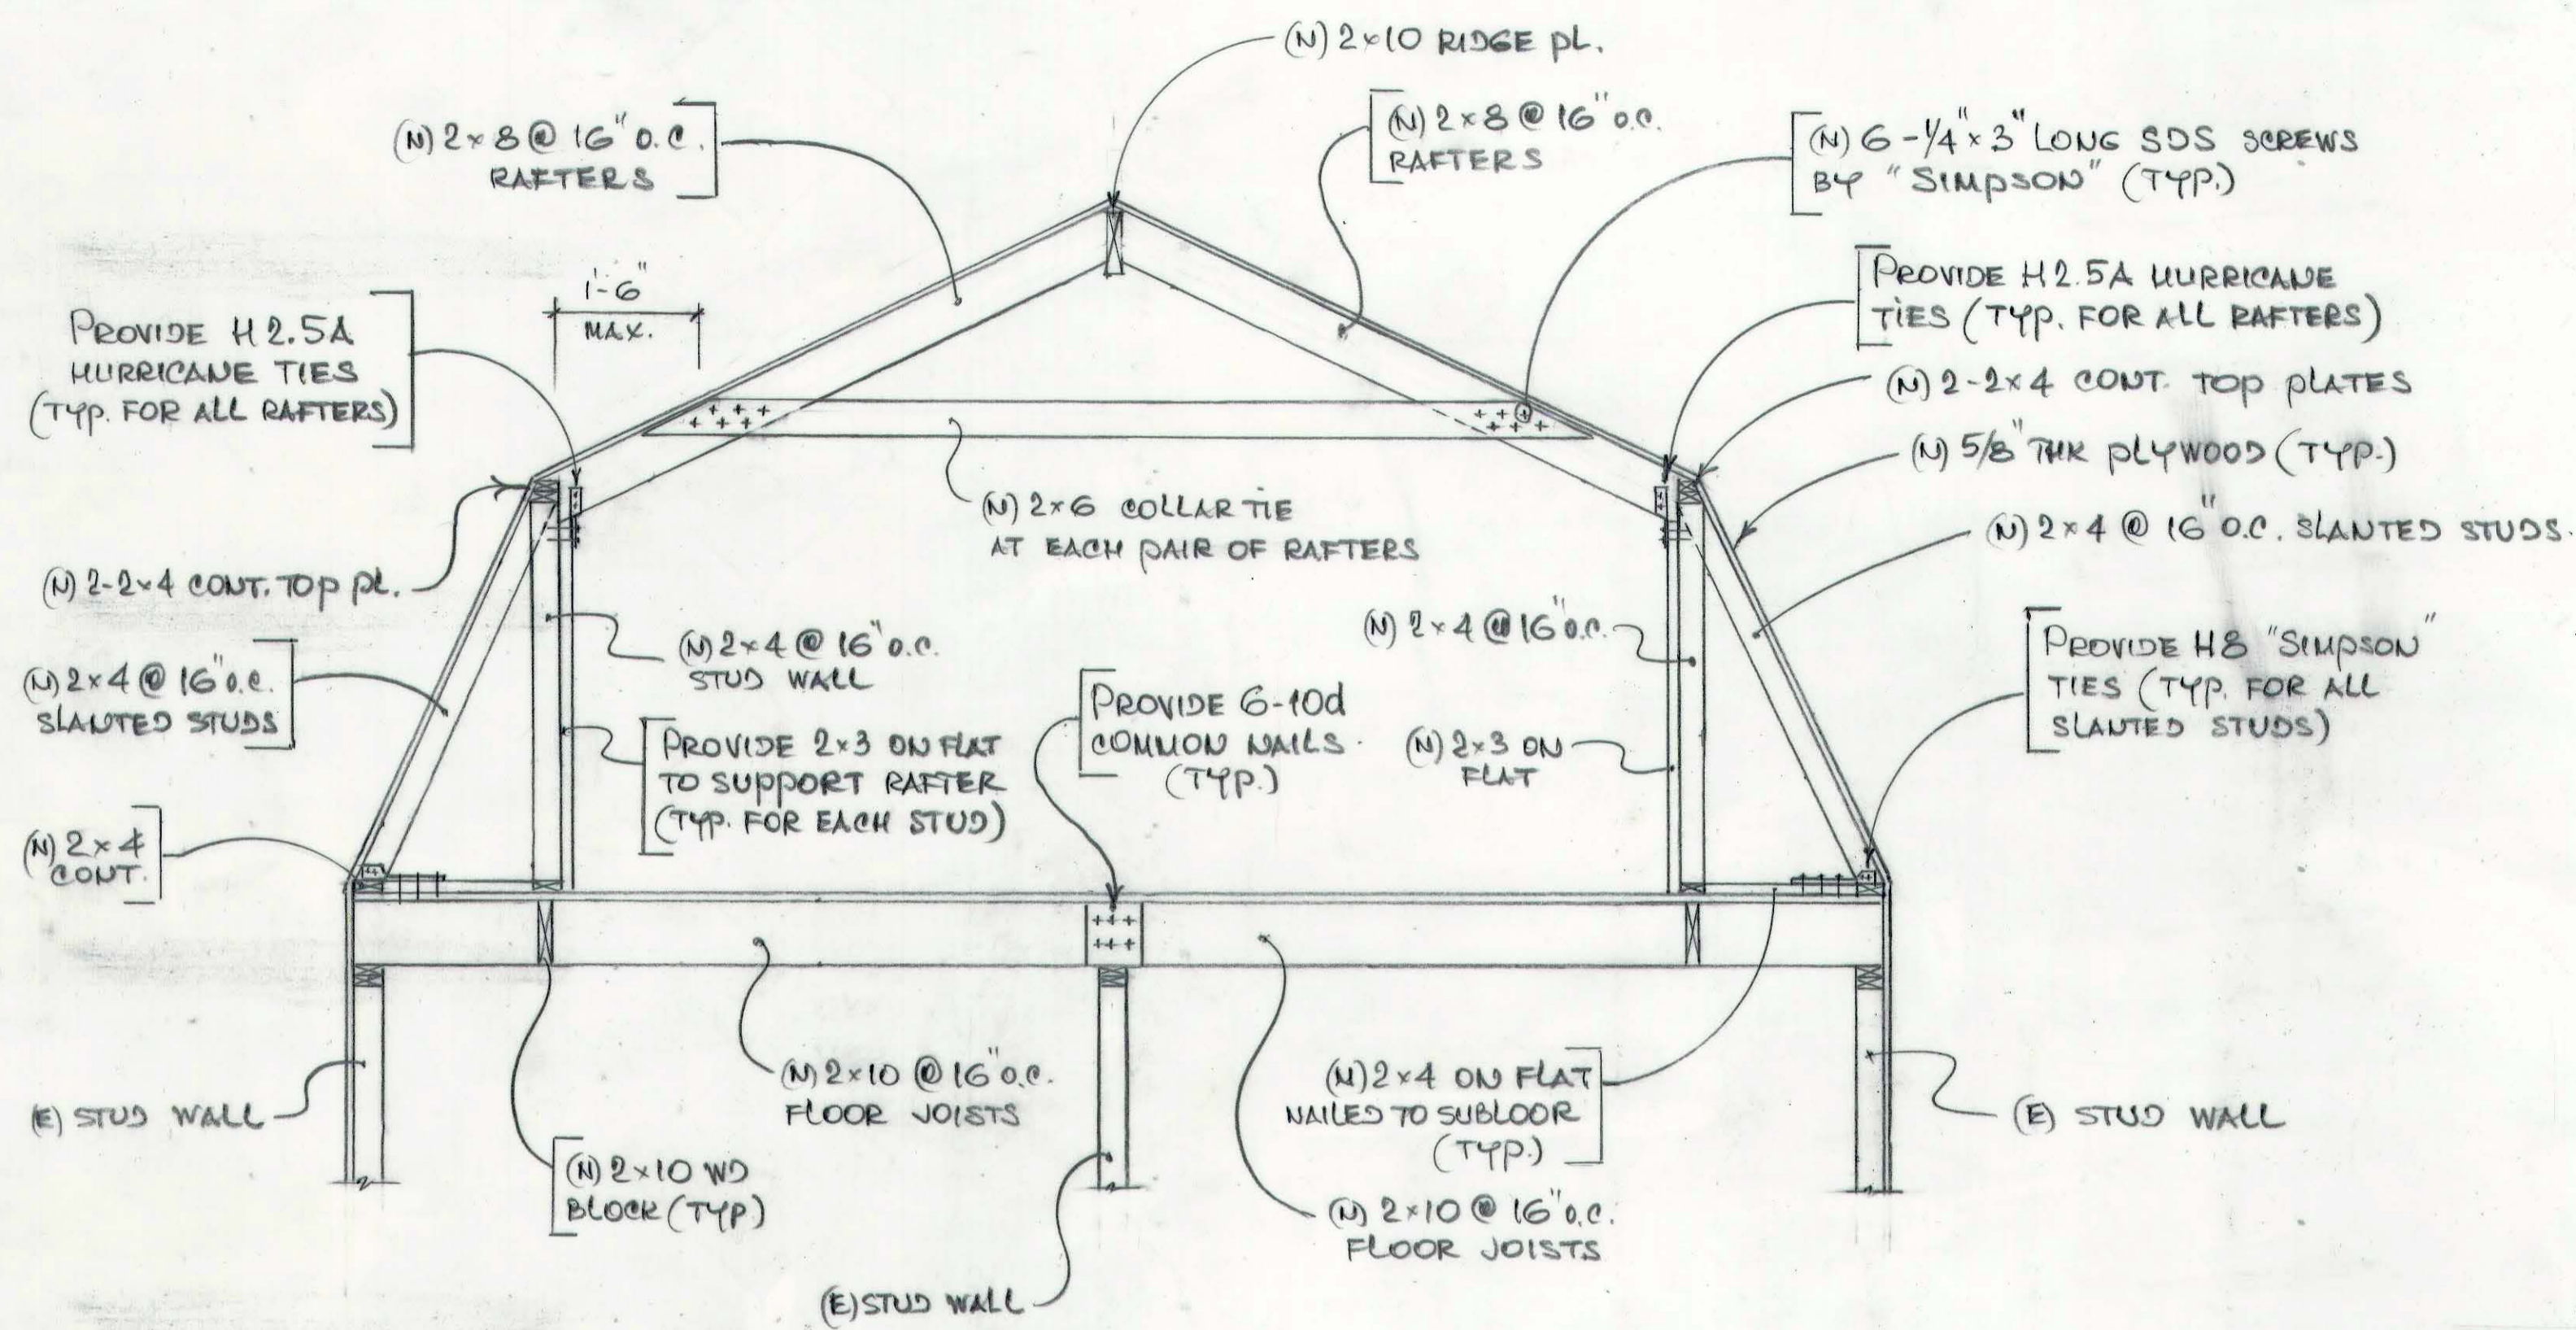 (N) 2x10 RIDGE PL.
(N) 2x8 @ 16" O.C.
RAFTERS
(N) 2x8 @ 16" O.C.
RAFTERS
(N) 6-1/4"x3" LONG SDS SCREWS
BY "SIMPSON" (TYP.)
1'-6"
MAX.
PROVIDE H2.5A
HURRICANE TIES
(TYP. FOR ALL RAFTERS)
PROVIDE H2.5A HURRICANE
TIES (TYP. FOR ALL RAFTERS)
(N) 2-2x4 CONT. TOP PLATES
(N) 5/8" THK PLYWOOD (TYP.)
(N) 2x4 @ 16" O.C. SLANTED STUDS.
(N) 2x6 COLLAR TIE
AT EACH PAIR OF RAFTERS
(N) 2-2x4 CONT. TOP PL.
(N) 2x4 @ 16" O.C.
STUD WALL
(N) 2x4 @ 16" O.C.
(N) 2x4 @ 16" O.C.
SLANTED STUDS
PROVIDE H8 "SIMPSON"
TIES (TYP. FOR ALL
SLANTED STUDS)
PROVIDE 2x3 ON FLAT
TO SUPPORT RAFTER
(TYP. FOR EACH STUD)
PROVIDE 6-10d
COMMON NAILS.
(TYP.)
(N) 2x3 ON
FLAT
(N) 2x4
CONT.
(N) 2x10 @ 16" O.C.
FLOOR JOISTS
(N) 2x4 ON FLAT
NAILED TO SUBLOOR
(TYP.)
(E) STUD WALL
(E) STUD WALL
(N) 2x10 WD
BLOCK (TYP.)
(N) 2x10 @ 16" O.C.
FLOOR JOISTS
(E) STUD WALL